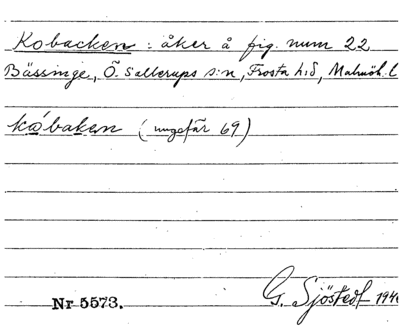 Kobacken : åker å fig. num 22
Bässinge, Ö. Sallerups s:n, Frosta h:d, Malmöh. l
(ungefär 69)
Nr 5573.
G. Sjöstedt